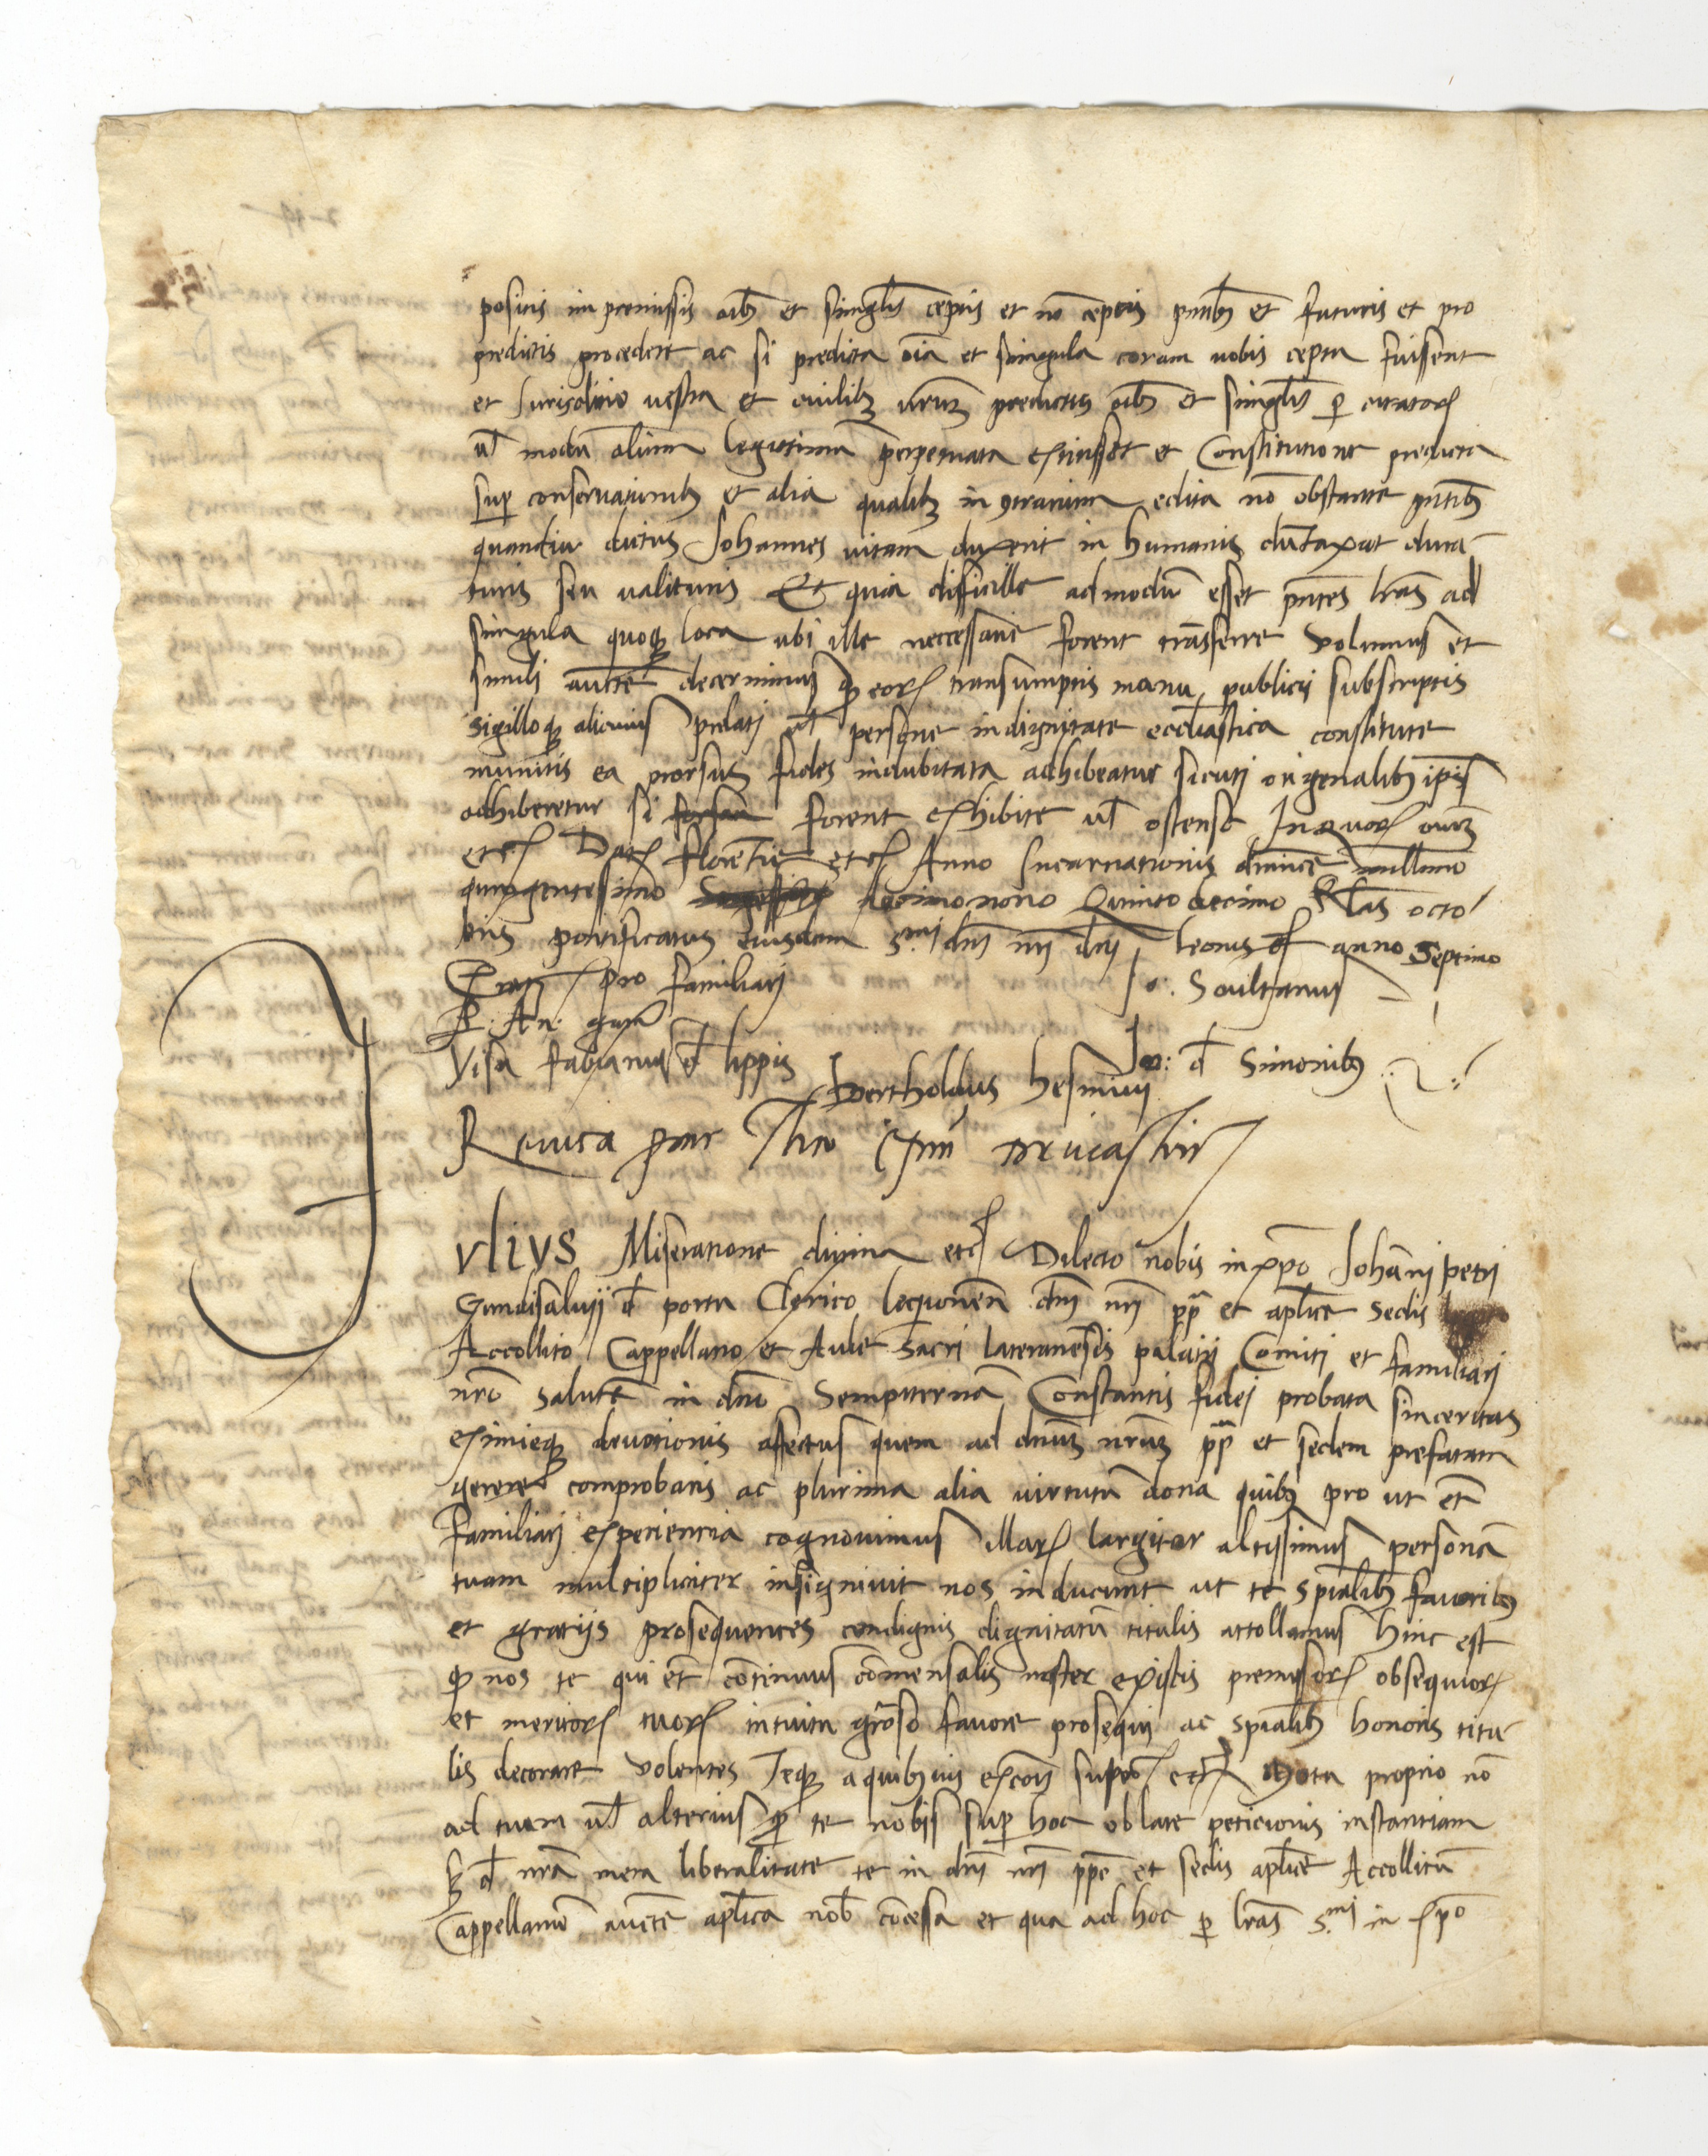 positis in premissis oib9 et singul'is ceptis et nō ceptis pntib9 et futuris et pro
predictis procedere ac si predicta oīa et singula coram vobis cepta fuissent
et Jurisditio vestra et cuilibꝫ vrūm predictis oib9 et singul'is p citatioꝫ
ul' modū alium legitimū perpetuata extitisset et Constitutione predicta
sup conservatoribꝫ et alia qualibꝫ in 9trarium edita nō obstante pntibꝫ
quandiu dictus Johannes vitam duxerit in humanis dūtaxat dura
turis seu valituris Et quia difficille admodū esset pntes lras ad
singula quoqꝫ loca ubi ille neccessarie forent trāsferre Volumus et
simili aucte decernimus qꝫ eorꝫ transumptis manu publici subscriptis
sigilloqꝫ alicuius prelati ul' persone in dignitate eccliastica constitute
munitis ea prorsus fides indubitata adhibeatur sicuti origenalibꝫ ipis
adhiberetur si forsan forent exhibite ul' ostense In quorꝫ oium
etcꝫ Datꝫ florentie etcꝫ Anno Incarnationis dnice millmo
quingentesimo decimonono Quintodecimo Klas octo
bris pontificatus eiusdem s.mi dni nri dni leonis etc anno Septimo
Gratis pro familiari Jo: Soultanus
P. An.
Visa fabianus d' lippis Jo: d' Simonibꝫ
bertholdus
Juliūs Miseratione divina etcꝫ Dilecto nobis in xpo Johāni petri
Gundisalvij d' porta Clerico legionen dni nri pp et aplice sedis
Accollito Cappellano et Aule sacri lateranēsis palatij Comiti et familiari
nro salutē in dno Sempiternā Constantis fidei probata sinceritas
eximieqꝫ devotionis affectus quem ad dnūm nrūm pp et sedem prefatam
gerere comprobaris ac plurima alia virtutū dona quibꝫ pro ut etē
familiari experiencia cognovimus illarꝫ largitor altissimus personā
tuam multipliciter insignivit nos inducunt ut te spialibꝫ favoribꝫ
et gratijs prosequentes condignis dignitatū titulis attollamus Hinc est
qꝫ nos te qui etē continuus cōmensalis noster existis premissorꝫ obsequiorꝫ
et meritorꝫ tuorꝫ intuitu grōso favore prosequi ac spialibꝫ honoris titu
lis decorare volentes Teqꝫ a quibusvis excōis suspeꝫ etcꝫ Motu proprio nō
ad tuam ul' alterius p te nobis sup hoc oblate peticionis instantiam
sꝫ d' nra mera liberalitate te in dni nri ppe et sedis aplice Accollitū
Cappellanū aucte aplica nob concessa et qua ad hoc p lras s.mi in xpo